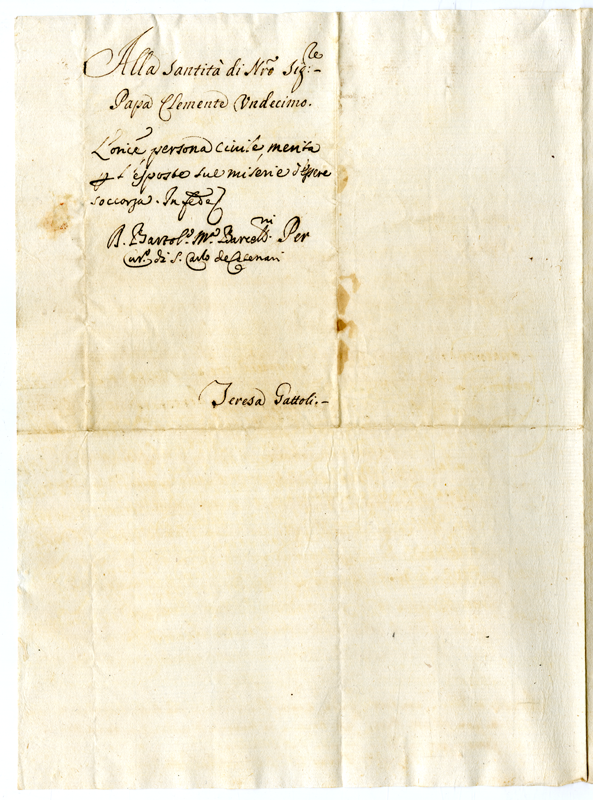 Alla Santità di Nrõ Sig.re
Papa Clemente Undecimo.
L'orice persona civile, merita
p l'esposte sue miserie d'essere
soccorza. In fede
B. Bartol.o M.a Barcell.ni Per
Cur.o di S. Carlo de Catenari
Teresa Gattoli.